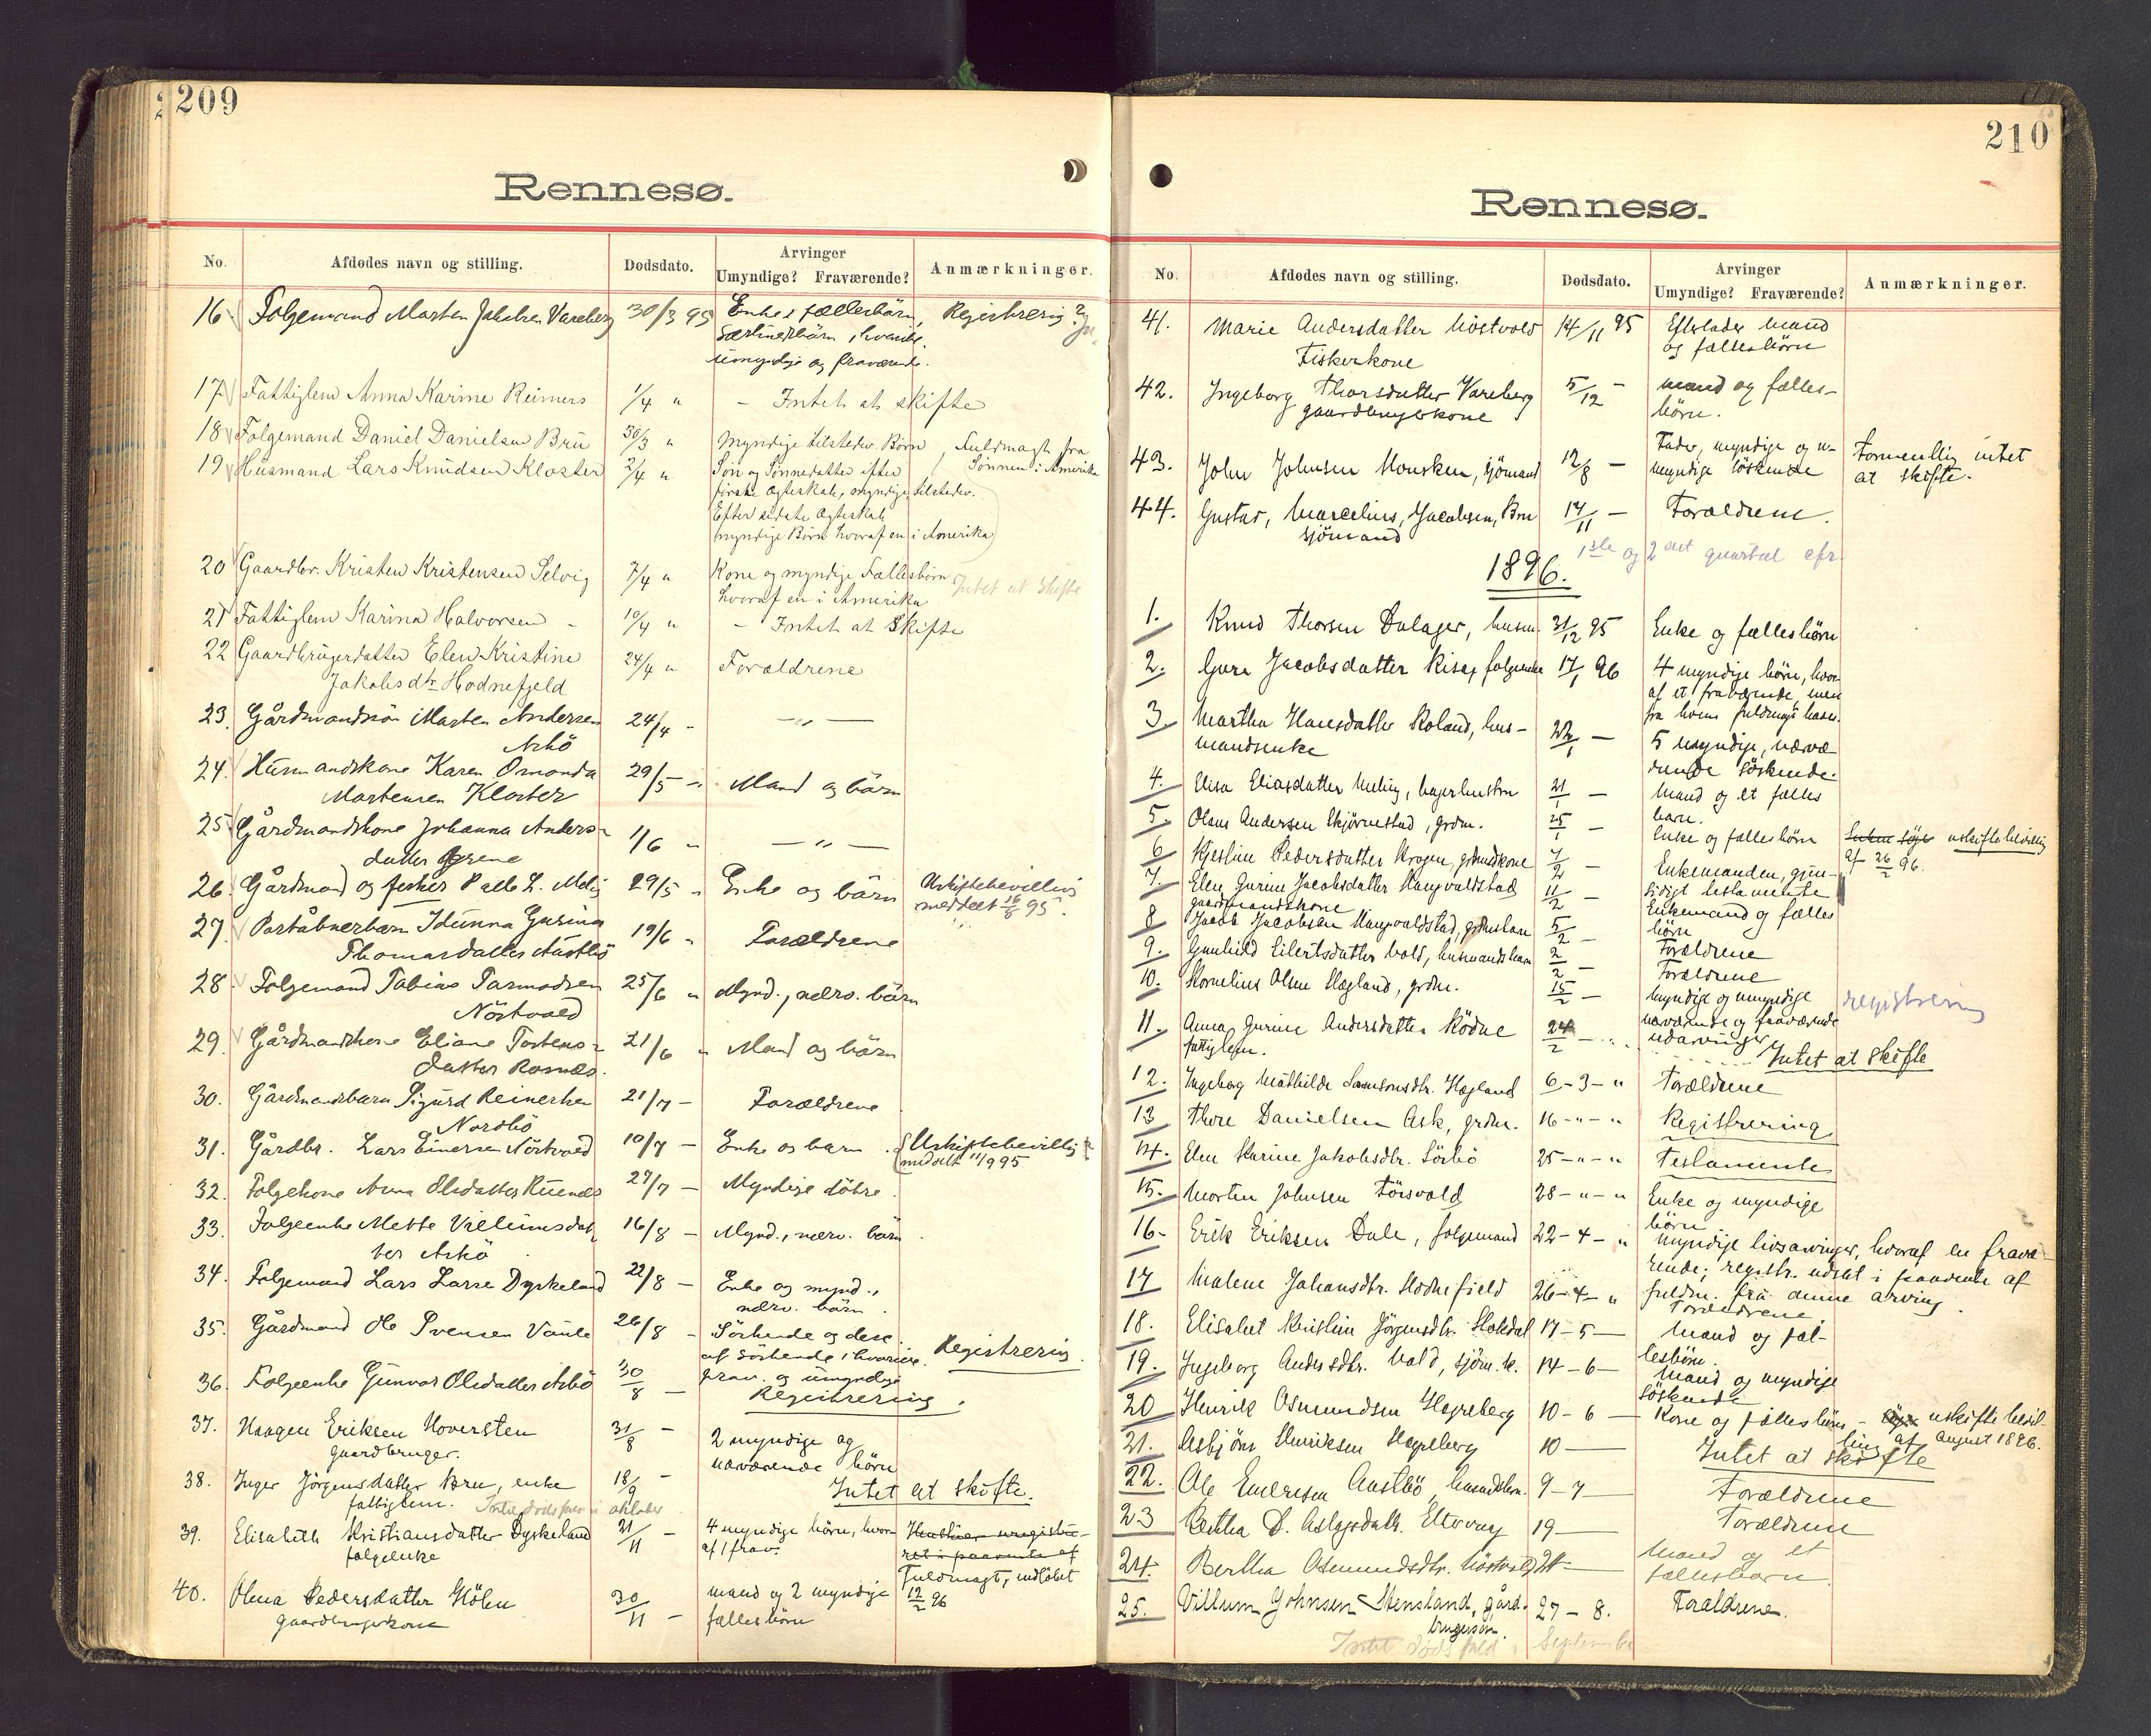 209
Rennesø.
No. Afdødes navn og stilling. Dødsdato. Arvinger Umyndige? Fraværende? Anmærkninger.
16 Folgemand Morten Jakobsen Vareberg 30/3 95 Enke, fællesbörn, Registrering
Særkuldsbörn, hvoraf
umyndige og fraværende.
17 Fattiglem Anna Karine Reimers 1/4 " - Intet at skifte
18 Folgemand Daniel Danielsen Bru 30/3 " Myndige tilstedev. Børn, Fuldmagt fra
Sønnen i Amerika
19 Husmand Lars Knudsen Kloster 2/4 " Søn og Sønnedatter efter
første Ægteskab, myndige, tilstedev.
Efter sidste Ægteskab
myndige Børn hvoraf en i Amerika
20 Gaardbr. Kristen Kristensen Selvig 7/4 " Kone og myndige Fællesbørn
hvoraf en i Amerika Intet at skifte
21 Fattiglem Karina Halvorsen - 10/4 " - Intet at Skifte
22 Gaardbrugerdatter Elen Kristine
Jakobsdtr Hodnefjeld 24/4 " Forældrene
23. Gårdmandssön Marten Andersen
Askö 24/4 - — " —
24. Husmandskone Karen Omonda
Martensen Kloster 29/5 - " Mand og börn
25 Gårdmandskone Johanna Anders-
datter Grene 1/6 " — " —
26. Gårdmand og fisker Palle L. Melig 29/5 " Enke og börn Uskiftebevilling
meddelt 16/8 95.
27. Poståbnerbarn Idunna Gurina
Thomasdatter Austbö 19/6 " Forældrene
28. Folgemand Tobias Tarmodsen
Nörtvold 25/6 " Mynd., nærv. börn
29. Gårdmandskone Eliane Torstens-
datter Rosnæs. 21/6 " Mand og börn
30. Gårdmandsbarn Sigurd Reinertsen
Nordbö 21/7 - Forældrene
31. Gårdbr. Lars Einersen Nörtvold 10/7 - Enke og barn. Uskiftebevilling
meddelt 11/9 95
32. Folgekone Anna Olsdatter 27/7 - Myndige döttre.
33. Folgeenke Mette Villumsdat-
ter Askö 16/8 - Mynd., nærv. börn
34. Folgemand Lars Larse Dyskeland 22/8 - Enke og mynd.,
nærv. börn.
35. Gårdmand Ole Svensen Vaule 26/8 - Söskende og desc.
af söskende, hvoriv. Registrering.
frav. og umyndige
36. Folgeenke Gunvor Olsdatter Asbö 30/8 - Registrering.
37. Haagen Eriksen Hoversten
gaardbruger. 31/8 - 2 myndige og
nærværende börn
38. Inger Jörgensdatter Bru, enke
fattiglem. 18/9 - Intet at skifte.
Intet dödsfald i oktober
39. Elisabeth Kristiansdatter Dyskeland
folgeenke 21/11 - 4 myndige börn, hvor-
af 1 frav.
Fuldmagt, indlöbet
12/2 96
40. Olena Pedersdatter Hölen
gaardbrugerkone 30/11 - mand og 2 myndige
fællesbörn
210
Rennesø.
No. Afdødes navn og stilling. Dødsdato. Arvinger Umyndige? Fraværende? Anmærkninger.
41. Marie Andersdatter Nöstvold
Fiskerkone 14/11 95 Efterlader mand
og fællesbörn
42. Ingeborg Thorsdatter Vareberg
gaardbrugerkone 5/12 - mand og fælles-
börn.
43. John Johnsen Housken, sjömand 12/8 - Fader, myndige og u-
myndige söskende Formentlig intet
at skifte.
44. Gustav, Marcelius, Jacobsen, Bru
sjömand 14/11 - Forældrene.
1896. 1ste og 2det quartal efr.
1. Knud Thorsen Dalager, husm. 31/12 95 Enke og fællesbörn
2. Gura Jacobsdatter Risa, folgeenke 17/1 96 4 myndige börn, hvor-
af et fraværende, men
fra hvem fuldmagt haves.
3. Martha Hansdatter Roland, hus-
mandsenke 22/1 - 5 myndige, nærvæ-
rende söskende.
4. Elisa Eliasdatter Meling, bagerhustru 21/1 - Mand og et fælles
barn.
5. Olaus Andersen Skjörnestad, grdm. 25/1 - Enke og fællesbörn uskiftebevilling
af 26/2 96.
6 Kjestine Pedersdatter Kragen, grdmdskone 7/2 - Enkemanden, gjen-
sidigt testamente
7. Elen Gurine Jacobsdatter Haugvaldstad
gaardmandskone 11/2 - Enkemand og fælles
börn
8 Jacob Jacobsen Haugvaldstad, 5/2 - Forældrene
9. Gunhild Eilertsdatter Vold, husmandsbarn 2/2 - Forældrene
10. Kornelius Olsen Hægland, grdm. 15/2 - myndige og umyndige registrering
nærværende og fraværende
udarvinger
11. Anna Gurine Andersdatter Rödne
fattiglem. 24/2 - Intet at skifte
12. Ingeborg Mathilde Samsonsdtr. Hægland 6 - 3 - " Forældrene
13 Thore Danielsen Ask, grdm. 16 - " - " Registrering
14. Elen Karine Jakobsdtr. Sörbö 25 - " - " Testamente
15. Morten Johnsen Försvold 28 - " - " Enke og myndige
börn
16. Erik Eriksen Dale, folgemand 22 - 4 - " myndige livsarvinger, hvoraf en fravæ-
rende; registr. udsat i paavente af
fuldm. fra denne arving.
17 Malene Johansdtr. Hodnefjeld 26 - 4 - " Forældrene.
18. Elisabet Kristine Jörgensdtr. Hokdal 17 - 5 — Mand og fæl-
lesbörn.
19. Ingeborg Andersdtr. Vold, sjöm. k. 14 - 6 — Mand og myndige
söskende
20 Henrik Osmundsen Hegreberg 10 - 6 — Kone og fællesbörn - uskiftebevil-
ling af August 1896.
21. Asbjörn Henriksen Hegreberg 10 — Intet at skifte
22. Ole Austbö husmdsbrn. 9 - 7 — Forældrene
23 Bertha D. Aslagsdatr. Eltervaag 19 — Forældrene
24. Bertha Osmundsdtr. Nöstvold — Mand og et
fællesbarn.
25. Villum Johnsen Stensland, gård-
brugersön. 27 - 8. Forældrene.
Intet dödsfald i September